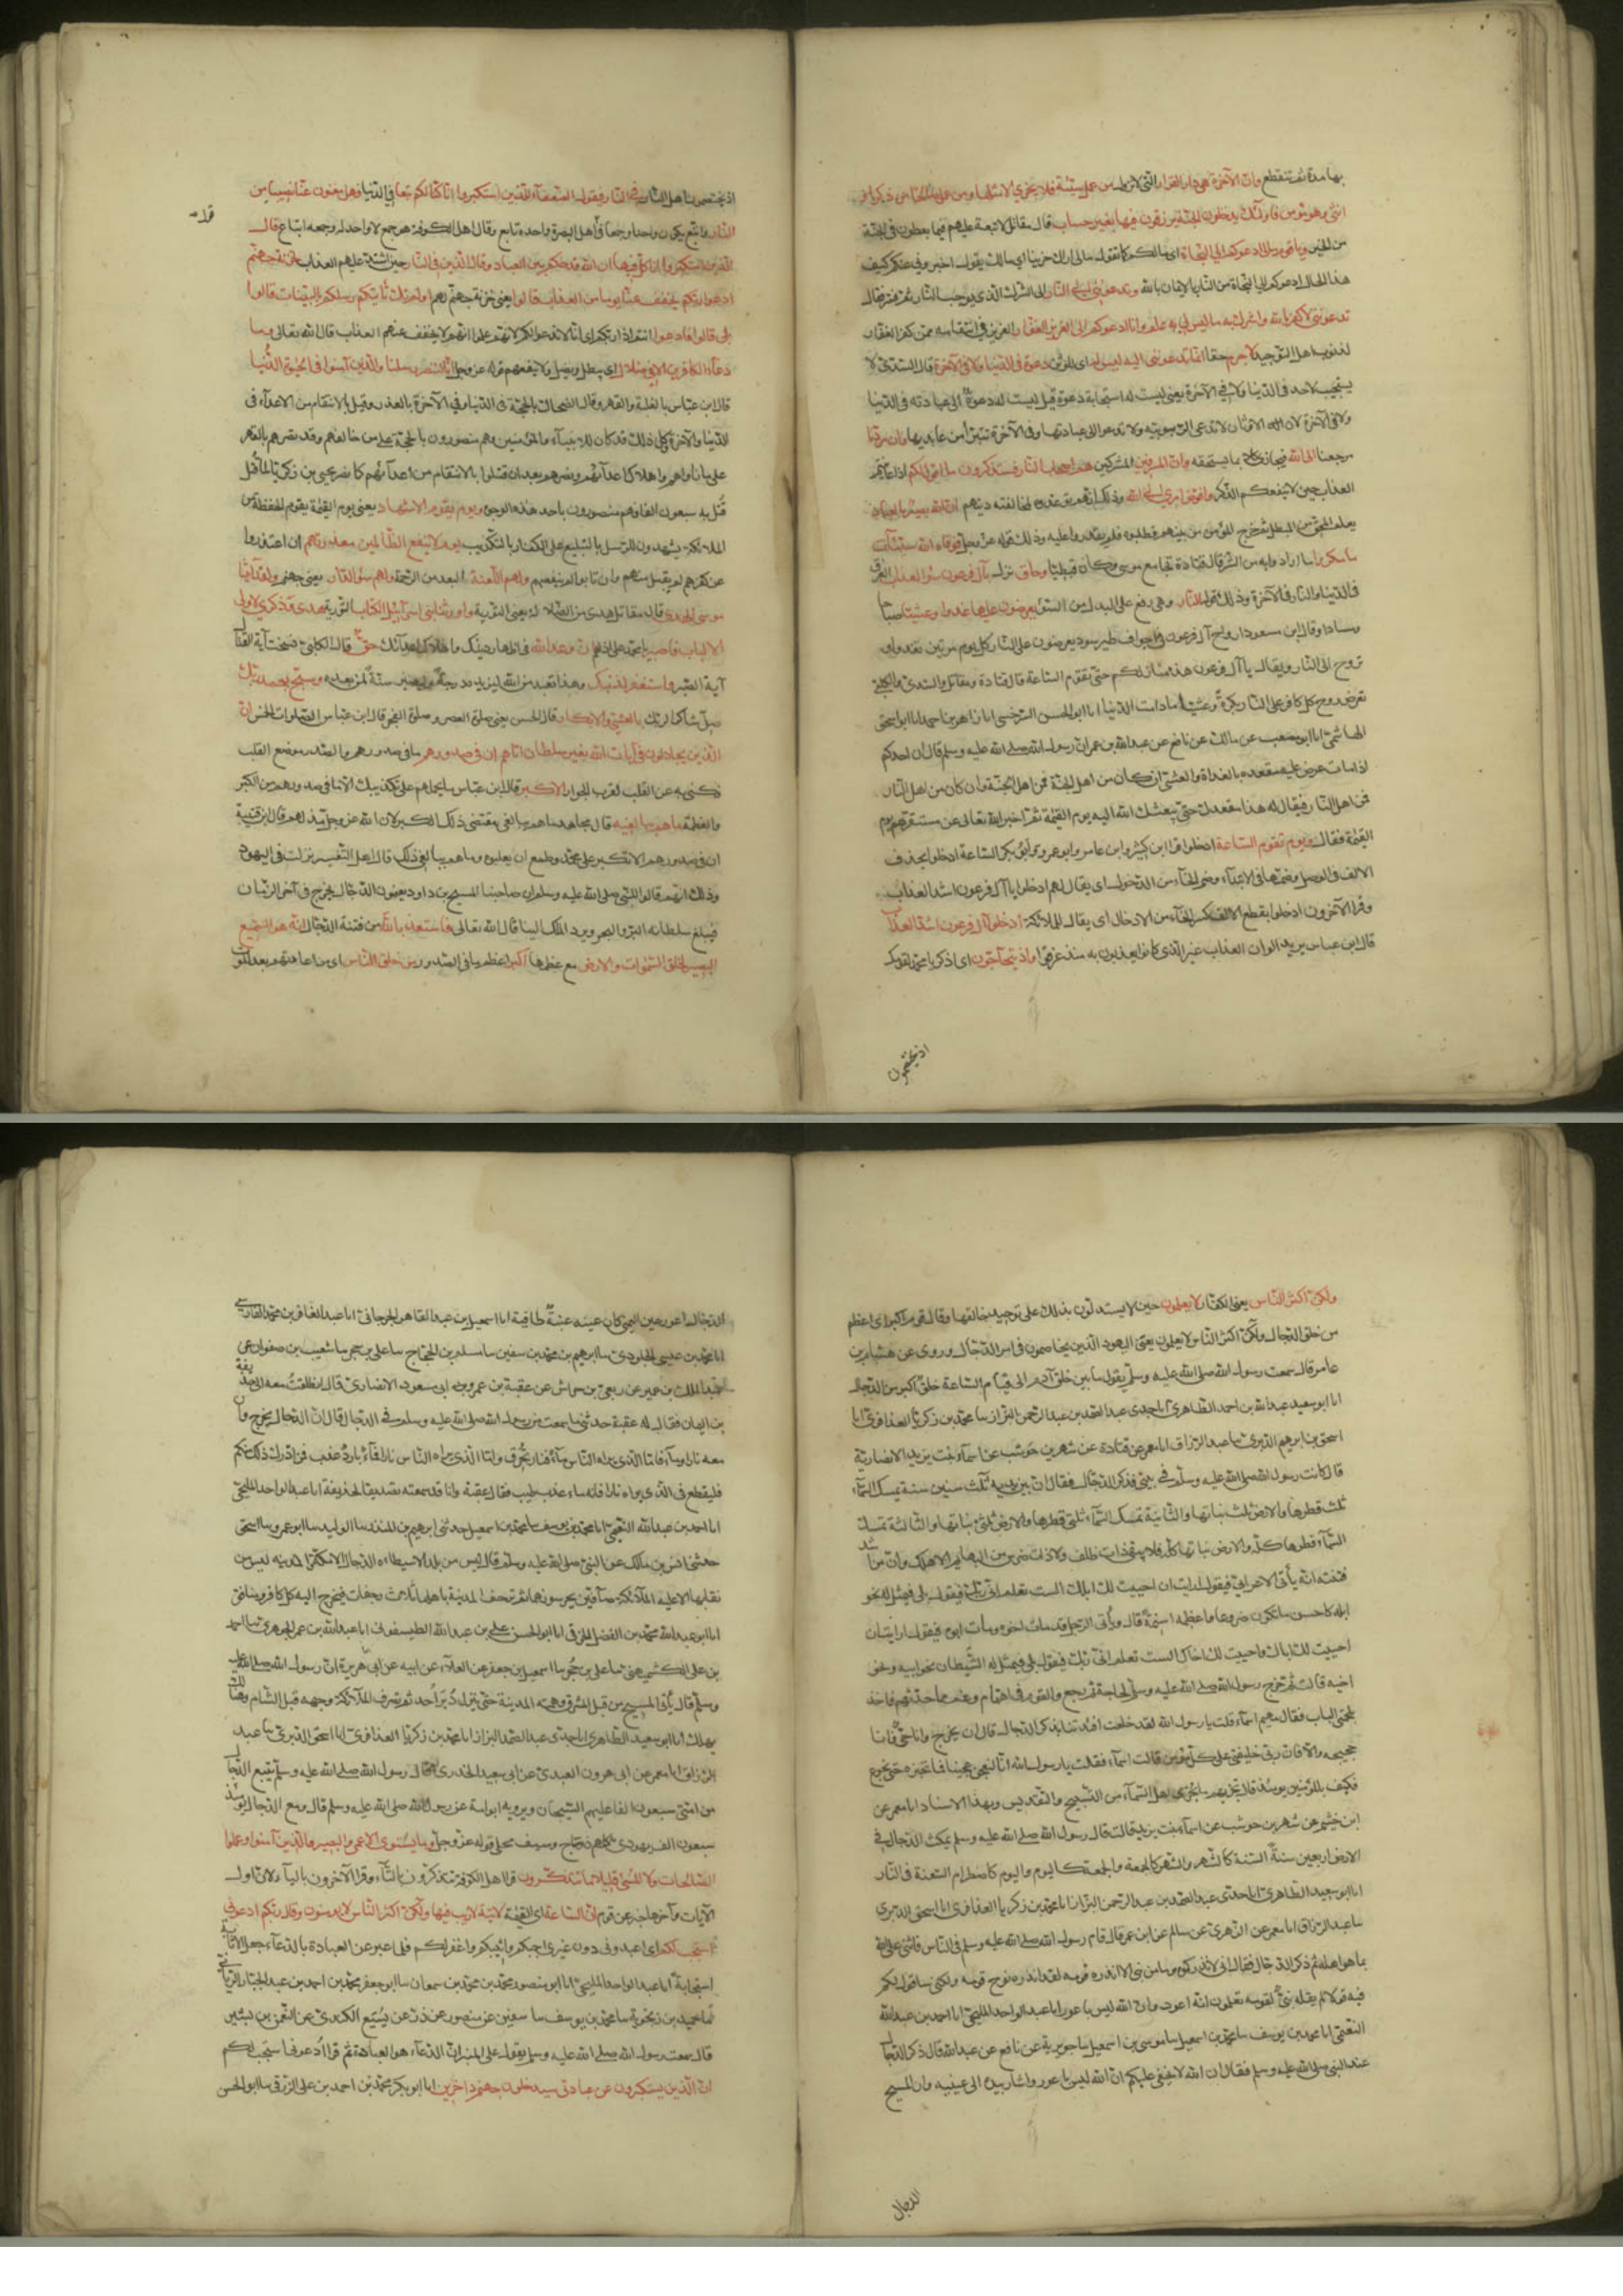 بها مدة ثم تنقطع وان الآخرة هي دار القرار التي لا تزول من عمل سيئة فلا يجزى الا مثلها ومن عمل صالحا من ذكر او
انثى وهو مؤمن فاولئك يدخلون الجنة يرزقون فيها بغير حساب قال مقاتل لا تبعة عليهم فيما يعطون في الجنة
من الخير ويا قوم مالي ادعوكم الى النجاة اي مالكم كما تقول مالي اراك حزينا اي مالك يقول اخبروني عنكم كيف
هذا الحال ادعوكم الى النجاة من النار بالايمان بالله وتدعونني الى النار الى الشرك الذي يوجب النار ثم فسر فقال
تدعونني لاكفر بالله واشرك به ما ليس لي به علم وانا ادعوكم الى العزيز الغفار العزيز في انتقامه ممن كفر الغفار
لذنوب اهل التوحيد لا جرم حقا انما تدعونني اليه ليس له اي للوثن دعوة في الدنيا ولا في الآخرة قال السدي لا
يستجيب لاحد في الدنيا ولا في الآخرة يعني ليست له استجابة دعوة قيل ليست له دعوة الى عبادته في الدنيا
ولا في الآخرة لان الاوثان لا تدعى الربوبية ولا تدعوا الى عبادتها وفي الآخرة تتبرأ من عابديها وان مردنا
مرجعنا الى الله فيجازي كلا بما يستحقه وان المسرفين المشركين هم اصحاب النار فستذكرون ما اقول لكم اذا عاينتم
العذاب حين لا ينفعكم الذكر وافوض امري الى الله وذلك انهم توعدوه لمخالفته دينهم ان الله بصير بالعباد
يعلم المحق من المبطل ثم خرج المؤمن من بينهم فطلبوه فلم يقدروا عليه وذلك قوله عز وجل فوقاه الله سيئات
ما مكروا ما ارادوا به من الشر قال قتادة نجا مع موسى وكان قبطيا وحاق نزل بآل فرعون سوء العذاب الغرق
في الدنيا والنار في الآخرة وذلك قوله النار وهي رفع على البدل من السوء يعرضون عليها غدوا وعشيا صباحا
ومساء وقال ابن مسعود ارواح آل فرعون في اجواف طير سود يعرضون على النار كل يوم مرتين تغدو او
تروح الى النار ويقال يا آل فرعون هذه منازلكم حتى تقوم الساعة قال قتادة ومقاتل والسدي والكلبي
تعرض روح كل كافر على النار بكرة وعشيا ما دامت الدنيا انا ابو الحسن السرخسي انا زاهر بن احمد انا ابو اسحق
الهاشمي انا ابو مصعب عن مالك عن نافع عن عبد الله بن عمر ان رسول الله صلى الله عليه وسلم قال ان احدكم
اذا مات عرض عليه مقعده بالغداة والعشي ان كان من اهل الجنة فمن اهل الجنة وان كان من اهل النار
فمن اهل النار فيقال له هذا مقعدك حتى يبعثك الله اليه يوم القيمة ثم اخبر الله تعالى عن مستقرهم يوم
القيمة فقال ويوم تقوم الساعة ادخلوا قرا ابن كثير وابن عامر وابو عمرو وابو بكر الساعة ادخلوا بحذف
الالف في الوصل وضمها في الابتداء وضم الخاء من الدخول اي يقال لهم ادخلوا يا آل فرعون اشد العذاب
وقرا الآخرون ادخلوا بقطع الالف وكسر الخاء من الادخال اي يقال للملائكة ادخلوا آل فرعون اشد العذاب
قال ابن عباس يريد الوان العذاب غير الذي كانوا يعذبون به منذ غرقوا واذ يتحاجون اي اذكر يا محمد لقومك
اذ يختصمون
اذ يختصمون اهل النار في النار فيقول الضعفاء للذين استكبروا انا كنا لكم تبعا في الدنيا فهل انتم مغنون عنا نصيبا من
النار والتبع يكون واحدا وجمعا في قول اهل البصرة واحده تابع وقال اهل الكوفة هو جمع لا واحد له وجمعه اتباع قال
الذين استكبروا انا كل فيها ان الله قد حكم بين العباد وقال الذين في النار حين اشتد عليهم العذاب لخزنة جهنم
ادعوا ربكم يخفف عنا يوما من العذاب قالوا يعني خزنة جهنم لهم اولم تك تأتيكم رسلكم بالبينات قالوا
بلى قالوا فادعوا انتم اذا ربكم اي انا لا ندعو لكم لانهم علموا انهم لا يخفف عنهم العذاب قال الله تعالى وما
دعاء الكافرين الا في ضلال اي يبطل ويضل ولا ينفعهم قوله عز وجل انا لننصر رسلنا والذين آمنوا في الحيوة الدنيا
قال ابن عباس بالغلبة والقهر وقال الضحاك بالحجة في الدنيا وفي الآخرة بالعذر وقيل بالانتقام من الاعداء في
الدنيا والآخرة وكل ذلك قد كان للانبياء والمؤمنين وهم منصورون بالحجة على من خالفهم وقد نصرهم بالقهر
على من ناواهم واهلاك اعدائهم ونصرهم بعد ان قتلوا بالانتقام من اعدائهم كما نصر يحيى بن زكريا لما قتل
قتل به سبعون الفا فهم منصورون باحد هذه الوجوه ويوم يقوم الاشهاد يعني يوم القيمة يقوم الحفظة من
الملائكة يشهدون للرسل بالتبليغ على الكفار بالتكذيب يوم لا ينفع الظالمين معذرتهم ان اعتذروا
عن كفرهم لم يقبل منهم وان تابوا لم ينفعهم ولهم اللعنة البعد من الرحمة ولهم سوء الدار يعني جهنم ولقد آتينا
موسى الهدى قال مقاتل هدى من الضلالة يعني التورية واورثنا بني اسرائيل الكتاب التورية هدى وذكرى لاولي
الالباب فاصبر يا محمد على اذاهم ان وعد الله في اظهار دينك واهلاك اعدائك حق قال الكلبي نسخت آية القتال
آية الصبر واستغفر لذنبك وهذا تعبد من الله ليزيده درجة وليصير سنة لمن بعده وسبح بحمد ربك
صل شاكرا لربك بالعشي والابكار قال الحسن يعني صلوة العصر وصلوة الفجر قال ابن عباس الصلوات الخمس ان
الذين يجادلون في آيات الله بغير سلطان اتاهم ان في صدورهم ما في صدورهم والصدر موضع القلب
فكنى به عن القلب لقرب الجوار الا كبر قال ابن عباس ما يحملهم على تكذيبك الا ما في صدورهم من الكبر
والعظمة ما هم ببالغيه قال مجاهد ما هم ببالغي مقتضى ذلك الكبر لان الله عز وجل مذلهم قال ابن قتيبة
ان في صدورهم الا تكبر على محمد وطمع ان يغلبوه وما هم ببالغي ذلك قال اهل التفسير نزلت في اليهود
وذلك انهم قالوا للنبي صلى الله عليه وسلم ان صاحبنا المسيح بن داود يعنون الدجال يخرج في آخر الزمان
فيبلغ سلطانه البر والبحر ويرد الملك الينا قال الله تعالى فاستعذ بالله من فتنة الدجال انه هو السميع
البصير لخلق السموات والارض مع عظمها اكبر اعظم في الصدور من خلق الناس اي من اعادتهم بعد الموت
ولكن اكثر الناس يعني الكفار لا يعلمون حين لا يستدلون بذلك على توحيد خالقها وقال قوم اكبر اي اعظم
من خلق الدجال ولكن اكثر الناس لا يعلمون يعني اليهود الذين يخاصمون في امر الدجال وروى عن هشام بن
عامر قال سمعت رسول الله صلى الله عليه وسلم يقول ما بين خلق آدم الى قيام الساعة خلق اكبر من الدجال
انا ابو سعيد عبد الله بن احمد الطاهري انا جدي عبد الصمد بن عبد الرحمن البزاز سا محمد بن زكريا العذافري انا
اسحق بن ابرهيم الدبري سا عبد الرزاق انا معمر عن قتادة عن شهر بن حوشب عن اسماء بنت يزيد الانصارية
قال كانت رسول الله صلى الله عليه وسلم في بيتي فذكر الدجال فقال ان بين يديه ثلث سنين سنة تمسك السماء
ثلث قطرها والارض ثلث نباتها والثانية تمسك السماء ثلثي قطرها والارض ثلثي نباتها والثالثة تمسك
السماء قطرها كله والارض نباتها كله فلا يبقى ذات ظلف ولا ذات ضرس من البهائم الا هلك وان من اشد
فتنته انه يأتي الاعرابي فيقول ارايت ان احييت لك ابلك الست تعلم اني ربك فيقول بلى فيمثل له نحو
ابله كاحسن ما تكون ضروعا واعظمه اسنمة قال ويأتي الرجل قد مات اخوه ومات ابوه فيقول ارايت ان
احييت لك اباك واحييت لك اخاك الست تعلم اني ربك فيقول بلى فيمثل له الشيطان نحو ابيه ونحو
اخيه قالت ثم خرج رسول الله صلى الله عليه وسلم لحاجة ثم رجع والقوم في اهتمام وغم مما حدثهم فاخذ
بلحمتي الباب فقال مهيم اسماء قلت يا رسول الله لقد خلعت افئدتنا بذكر الدجال قال ان يخرج وانا حي فانا
حجيجه والا فان ربي خليفتي على كل مؤمن قالت اسماء فقلت يا رسول الله انا لنعجن عجينا فما نخبزه حتى نجوع
فكيف بالمؤمنين يومئذ قال يجزيهم ما يجزي اهل السماء من التسبيح والتقديس وبهذا الاسناد انا معمر عن
ابن خثيم عن شهر بن حوشب عن اسماء بنت يزيد قالت قال رسول الله صلى الله عليه وسلم يمكث الدجال في
الارض اربعين سنة السنة كالشهر والشهر كالجمعة والجمعة كاليوم واليوم كاضطرام السعفة في النار
انا ابو سعيد الطاهري انا جدي عبد الصمد بن عبد الرحمن البزاز انا محمد بن زكريا العذافري انا اسحق الدبري
سا عبد الرزاق انا معمر عن الزهري عن سالم عن ابن عمر قال قام رسول الله صلى الله عليه وسلم في الناس فاثنى على الله
بما هو اهله ثم ذكر الدجال فقال اني لانذركموه وما من نبي الا انذره قومه لقد انذره نوح قومه ولكني ساقول لكم
فيه قولا لم يقله نبي لقومه تعلمون انه اعور وان الله ليس باعور انا عبد الواحد المليحي انا احمد بن عبد الله
النعيمي انا محمد بن يوسف سا محمد بن اسمعيل سا موسى بن اسمعيل سا جويرية عن نافع عن عبد الله قال ذكر الدجال
عند النبي صلى الله عليه وسلم فقال ان الله لا يخفى عليكم ان الله ليس باعور واشار بيده الى عينيه وان المسيح
الدجال
الدجال اعور عين اليمنى كان عينه عنبة طافية انا اسمعيل بن عبد القاهر الجرجاني انا عبد الغافر بن محمد الفارسي
انا محمد بن عيسى الجلودي سا ابرهيم بن محمد بن سفين سا مسلم بن الحجاج سا علي بن حجر سا شعيب بن صفوان عن
عبد الملك بن عمير عن ربعي بن حراش عن عقبة بن عمرو ابي مسعود الانصاري قال انطلقت معه الى حذيفة
بن اليمان فقال له عقبة حدثني ما سمعت من رسول الله صلى الله عليه وسلم في الدجال قال ان الدجال يخرج وان
معه نارا وماء فاما الذي يراه الناس ماء فنار تحرق واما الذي يراه الناس نارا فماء بارد عذب فمن ادرك ذلك منكم
فليقع في الذي يراه نارا فانه ماء عذب طيب فقال عقبة وانا قد سمعته تصديقا لحذيفة انا عبد الواحد المليحي
انا احمد بن عبد الله النعيمي انا محمد بن يوسف سا محمد بن اسمعيل حدثني ابرهيم بن المنذر سا الوليد سا ابو عمرو سا اسحق
حدثني انس بن مالك عن النبي صلى الله عليه وسلم قال ليس من بلد الا سيطاه الدجال الا مكة والمدينة ليس من
نقابها الا عليه الملائكة صافين يحرسونها ثم ترجف المدينة باهلها ثلث رجفات فيخرج اليه كل كافر ومنافق
انا ابو عبد الله محمد بن الفضل الخرقي انا ابو الحسن علي بن عبد الله الطيسفوني انا عبد الله بن عمر الجوهري سا احمد
بن علي الكشميهني سا علي بن حجر سا اسمعيل بن جعفر عن العلاء عن ابيه عن ابي هريرة ان رسول الله صلى الله عليه
وسلم قال يأتي المسيح من قبل المشرق وهمته المدينة حتى ينزل دبر احد ثم تصرف الملائكة وجهه قبل الشام وهنالك
يهلك انا ابو سعيد الطاهري انا جدي عبد الصمد البزاز انا محمد بن زكريا العذافري انا اسحق الدبري سا عبد
الرزاق انا معمر عن ابي هرون العبدي عن ابي سعيد الخدري قال قال رسول الله صلى الله عليه وسلم يتبع الدجال
من امتي سبعون الفا عليهم السيجان ويرويه ابو امامة عن رسول الله صلى الله عليه وسلم قال ومع الدجال يومئذ
سبعون الف يهودي كلهم ذو تاج وسيف محلى قوله عز وجل وما يستوي الاعمى والبصير والذين آمنوا وعملوا
الصالحات ولا المسيء قليلا ما تتذكرون قرا اهل الكوفة تتذكرون بالتاء وقرا الآخرون بالياء لان اول
الآيات وآخرها خبر عن قوم ان الساعة اي القيمة لآتية لا ريب فيها ولكن اكثر الناس لا يؤمنون وقال ربكم ادعوني
استجب لكم اي اعبدوني دون غيري اجبكم واثيبكم واغفر لكم فلما عبر عن العبادة بالدعاء جعل الاثابة
استجابة انا عبد الواحد المليحي انا ابو منصور محمد بن محمد بن سمعان سا ابو جعفر محمد بن احمد بن عبد الجبار الرياني
سا حميد بن زنجويه سا محمد بن يوسف سا سفين عن منصور عن ذر عن يسيع الكندي عن النعمن بن بشير
قال سمعت رسول الله صلى الله عليه وسلم يقول على المنبر ان الدعاء هو العبادة ثم قرا ادعوني استجب لكم
ان الذين يستكبرون عن عبادتي سيدخلون جهنم داخرين انا ابو بكر محمد بن احمد بن علي الزرقي سا ابو الحسن